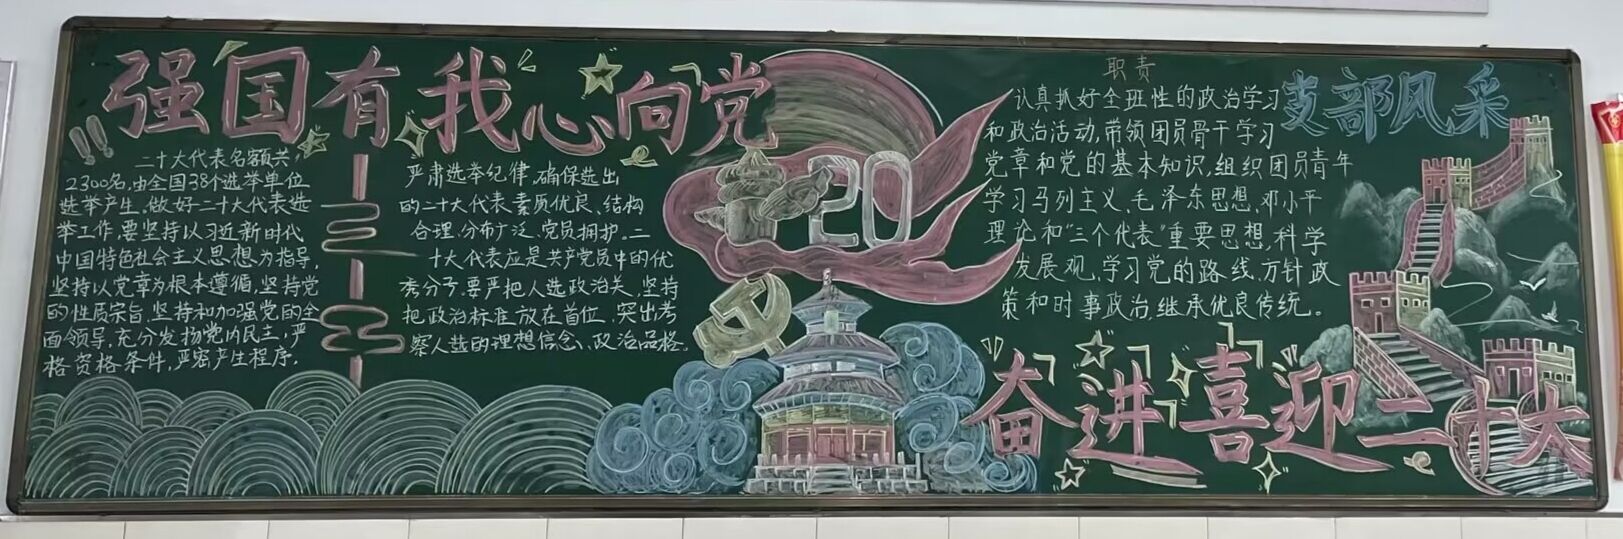 强国有我心向党
二十大代表名额共
2300名,由全国38个选举单位
选举产生。做好二十大代表选
举工作,要坚持以习近新时代
中国特色社会主义思想为指导,
坚持以党章为根本遵循,坚持党
的性质宗旨,坚持和加强党的全
面领导,充分发扬党内民主,严
格资格条件,严密产生程序,
严肃选举纪律,确保选出
的二十大代表素质优良、结构
合理、分布广泛、党员拥护。二
十大代表应是共产党员中的优
秀分子,要严把人选政治关,坚持
把政治标准放在首位,突出考
察人选的理想信念、政治品格。
20
职责
认真抓好全班性的政治学习
和政治活动,带领团员骨干学习
党章和党的基本知识,组织团员青年
学习马列主义、毛泽东思想、邓小平
理论和“三个代表”重要思想,科学
发展观,学习党的路线、方针政
策和时事政治,继承优良传统。
支部风采
奋进喜迎二十大